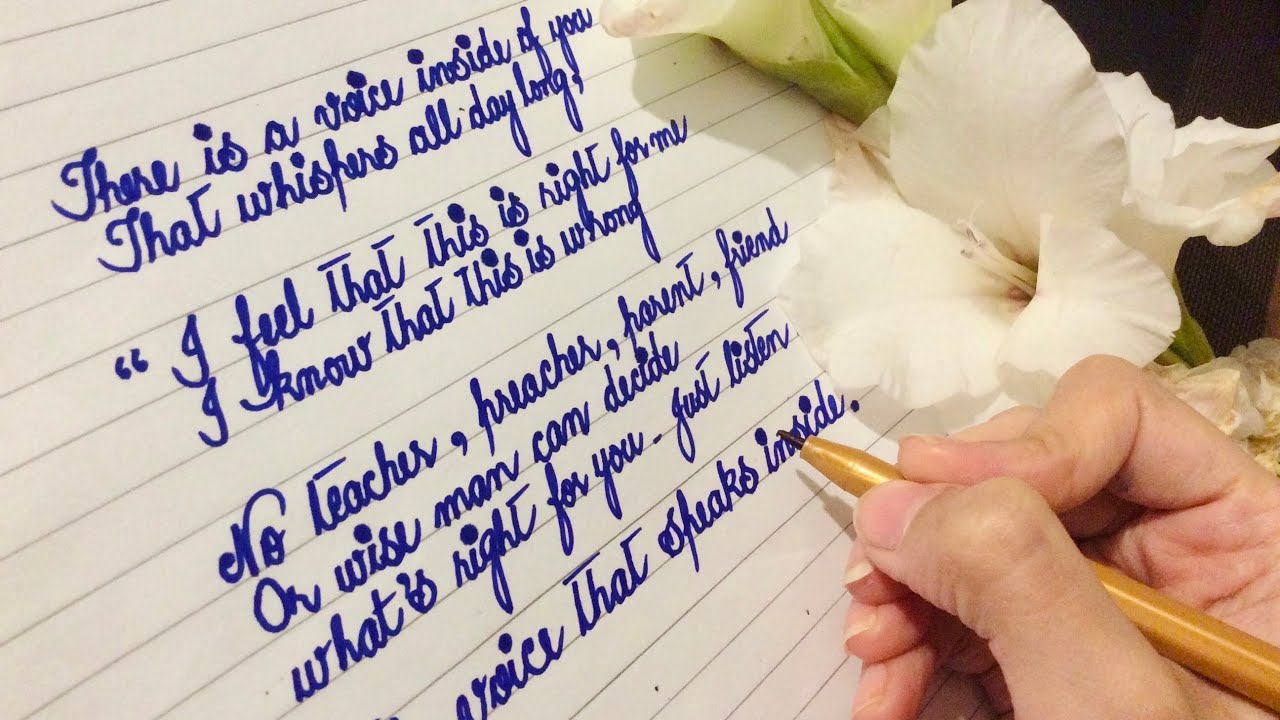 There is a voice inside of you
That whispers all day long,
“ I feel that this is right for me
I know that this is wrong
No teacher, preacher, parent, friend
Or wise man can decide
what's right for you - Just listen
voice that speaks inside.